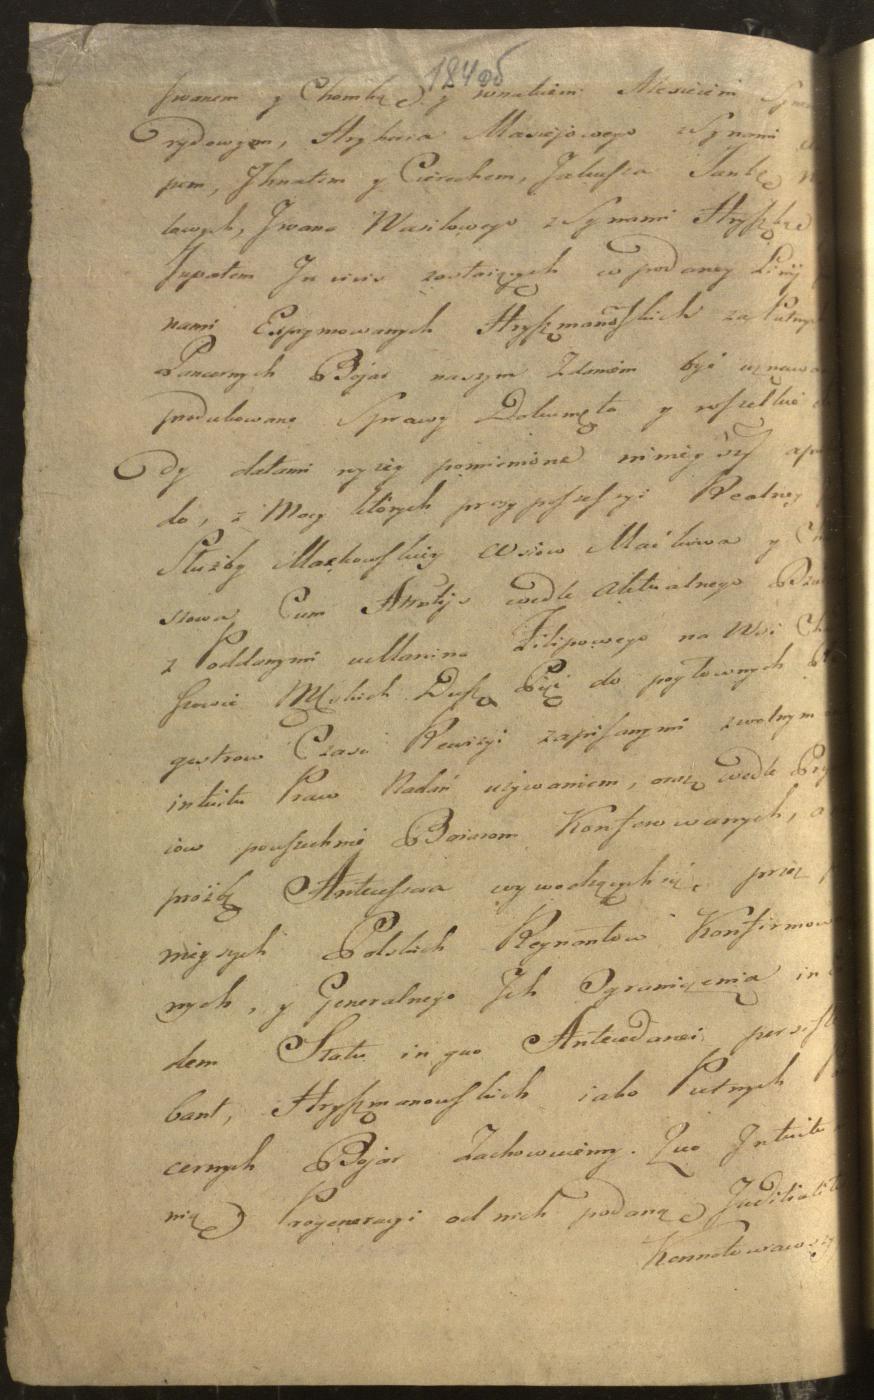 184об
Iwanem y Chomką y wnukiem Alexieiem Synem
rydowym, Hryhora Maciejowego z Synami
pem, Ihnatem y Cierechem, Jakusza Jankę
lowych, Iwana Wasilowego z Synami Hryszką
Jupatem In vivis zostaiących w podaney Linij
nami Exprymowanych Hryszmanowskich za Putnych
Pancernych Bojar naszym Zdaniem być uznawa
produkowane Sprawy Dokumęta y wszelkie
Dy datami wyżey pomienione ninieyszy
do, z Mocy których przy possessyi Realney
Służby Maxkowskiey Wsiow Maćkowa y
szowa Cum Attentijs wedle aktualnego
z Poddanymi Filipowego na Wsi
szowie Męskich Dusz Pięć do pogłownych
gestrow Czasu Rewizyi zapisanymi zwolnym
intuitu Praw Nadań używaniem, oraz wedle
iow powszechnie Boiarom Konferowanych,
proźbę Antecessora wywodzących się, przez
nieyszych Polskich Regnantow Konfirmowa
nych, y Generalnego Ich Ograniczenia in
dem Statu in quo Antecedanei persiste
bant, Hryszmanowskich iako Putnych
cernych Bojar Zachowuiemy. Quo Intuitu
nią Progeneracyi od nich podaną
Konnotowawszy